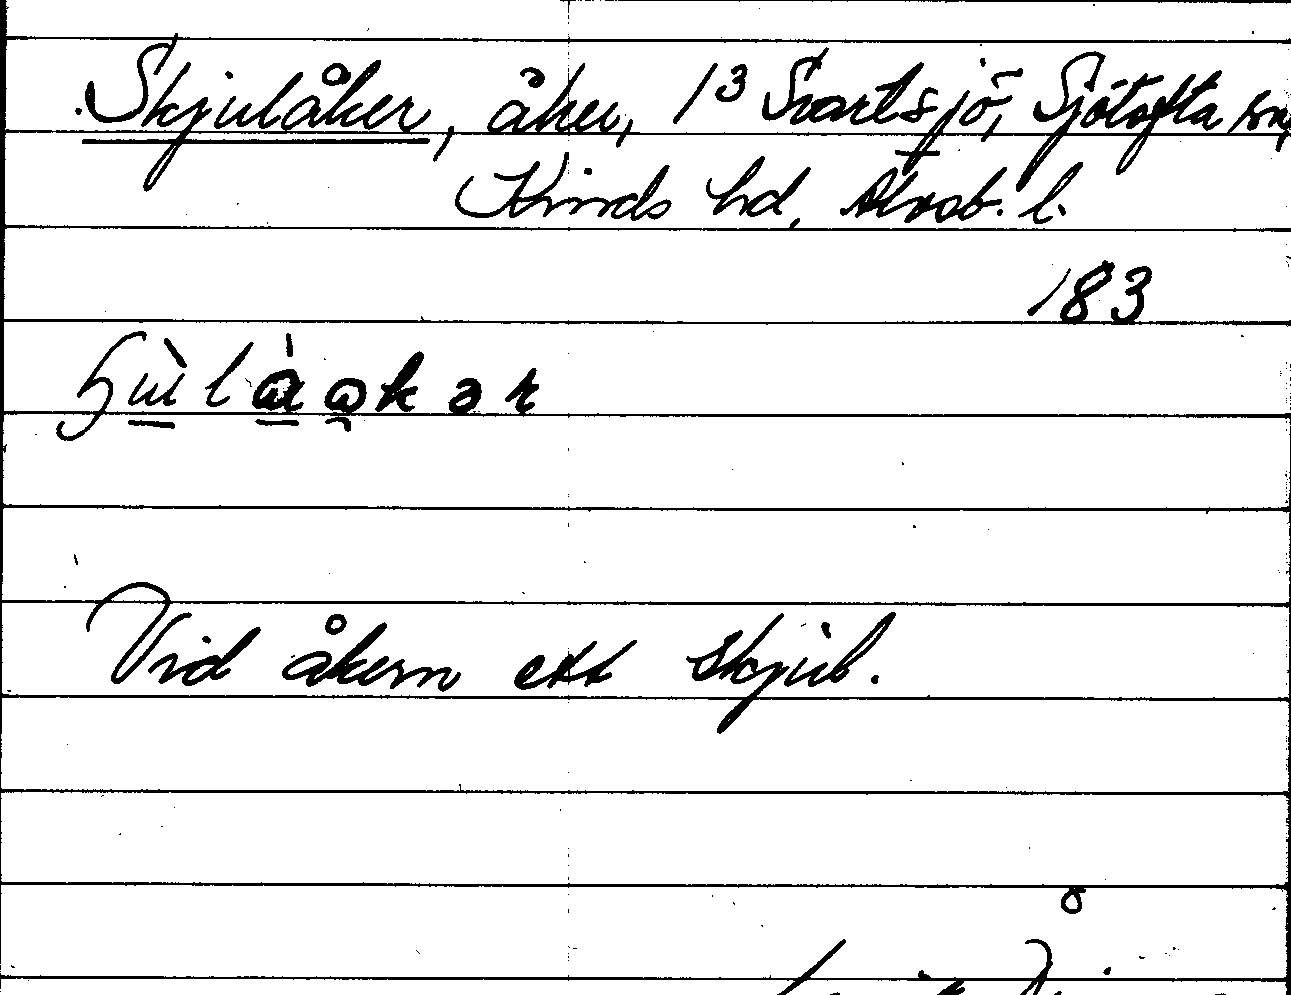 Skjulåker, åker, 1³ Svartsjö, Sjötofta sn,
Kinds hd, Älvsb. l.
183
Vid åkern ett skjul.